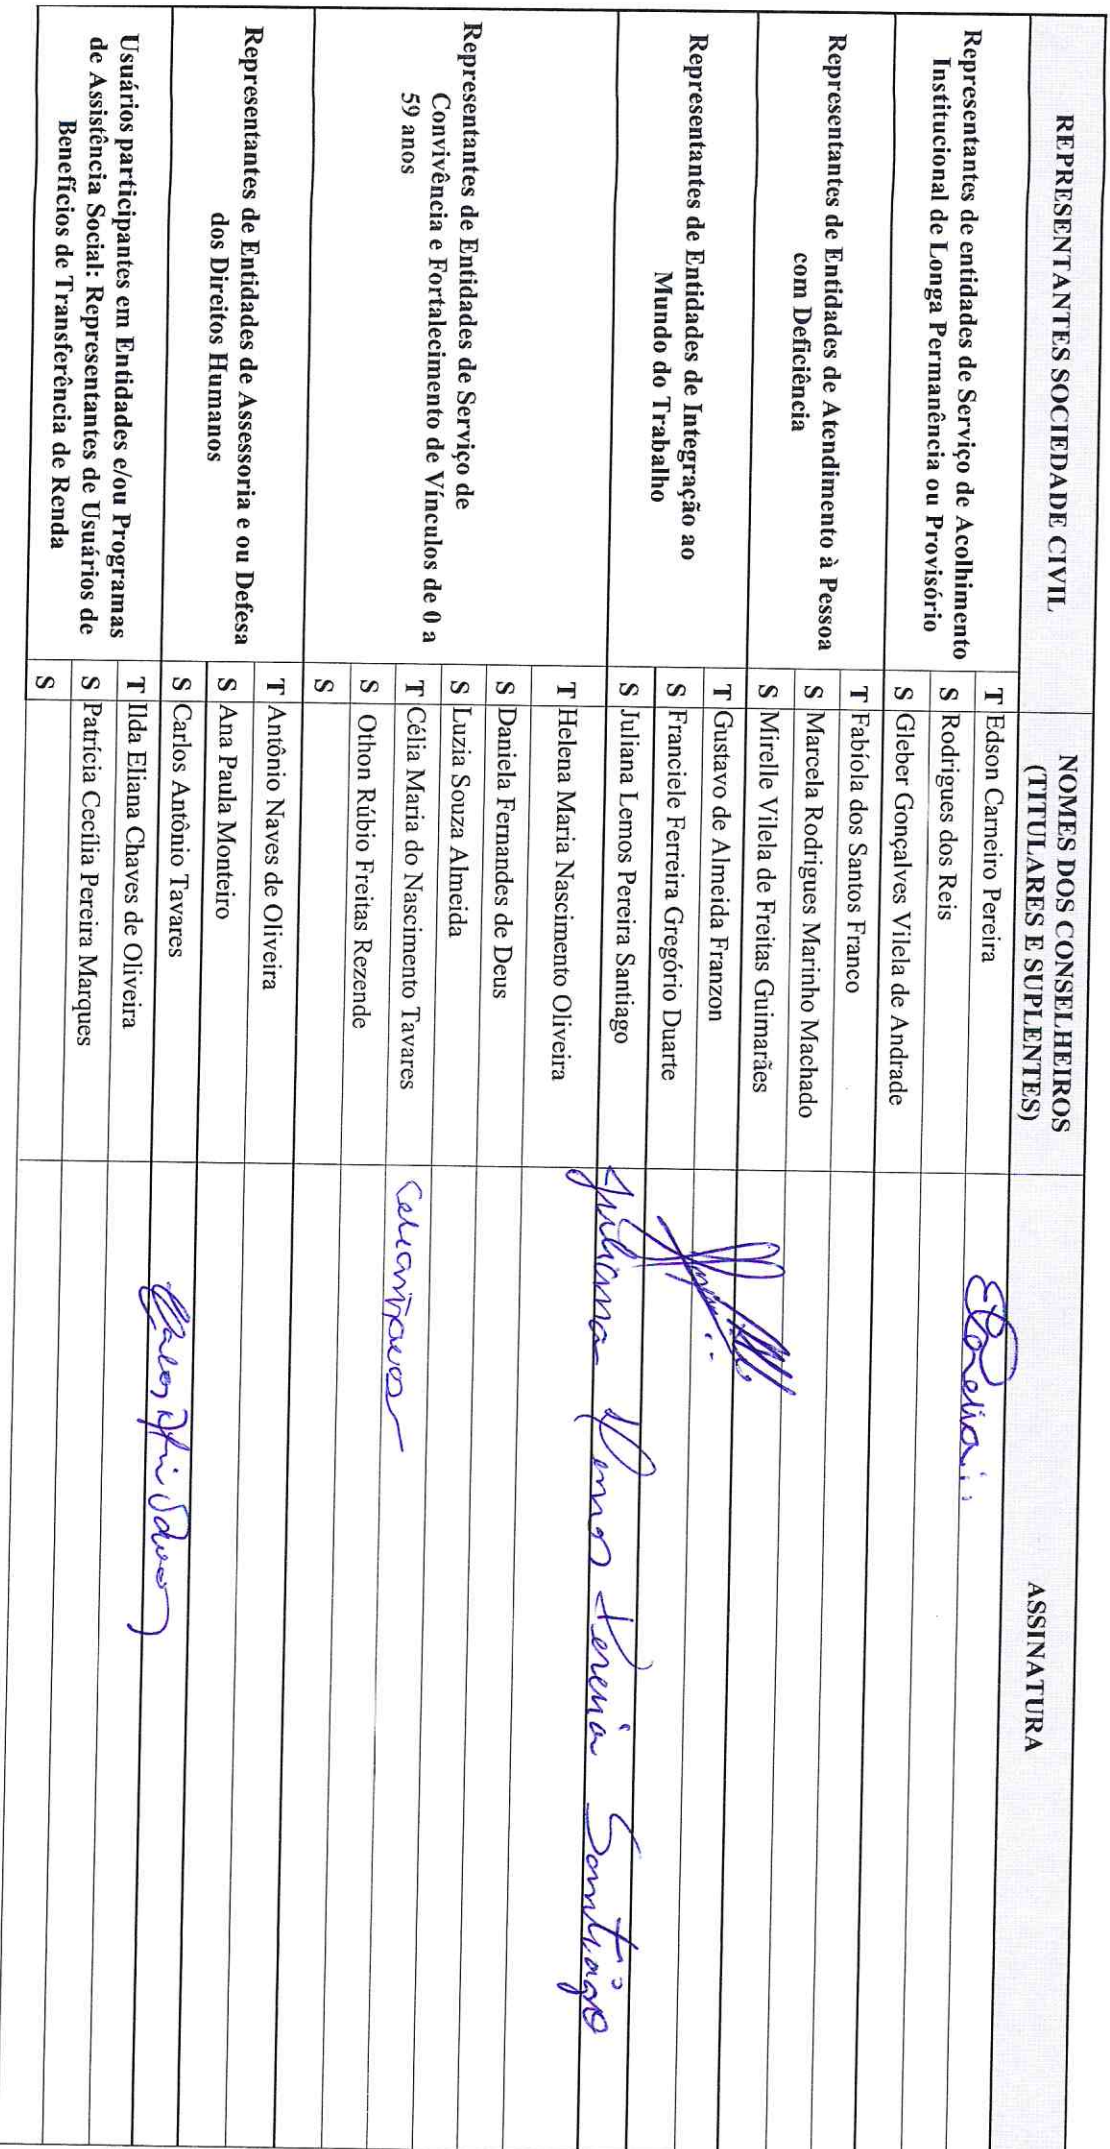 REPRESENTANTES SOCIEDADE CIVIL
NOMES DOS CONSELHEIROS
(TITULARES E SUPLENTES)
ASSINATURA
Representantes de entidades de Serviço de Acolhimento
Institucional de Longa Permanência ou Provisório
T Edson Carneiro Pereira
S Rodrigues dos Reis
S Gleber Gonçalves Vilela de Andrade
Representantes de Entidades de Atendimento à Pessoa
com Deficiência
T Fabíola dos Santos Franco
S Marcela Rodrigues Marinho Machado
S Mirelle Vilela de Freitas Guimarães
Representantes de Entidades de Integração ao
Mundo do Trabalho
T Gustavo de Almeida Franzon
S Franciele Ferreira Gregório Duarte
S Juliana Lemos Pereira Santiago
Juliana Lemos Pereira Santiago
Representantes de Entidades de Serviço de
Convivência e Fortalecimento de Vínculos de 0 a
59 anos
T Helena Maria Nascimento Oliveira
S Daniela Fernandes de Deus
S Luzia Souza Almeida
T Célia Maria do Nascimento Tavares
S Othon Rúbio Freitas Rezende
S
Representantes de Entidades de Assessoria e ou Defesa
dos Direitos Humanos
T Antônio Naves de Oliveira
S Ana Paula Monteiro
S Carlos Antônio Tavares
Usuários participantes em Entidades e/ou Programas
de Assistência Social: Representantes de Usuários de
Benefícios de Transferência de Renda
T Ilda Eliana Chaves de Oliveira
S Patrícia Cecília Pereira Marques
S